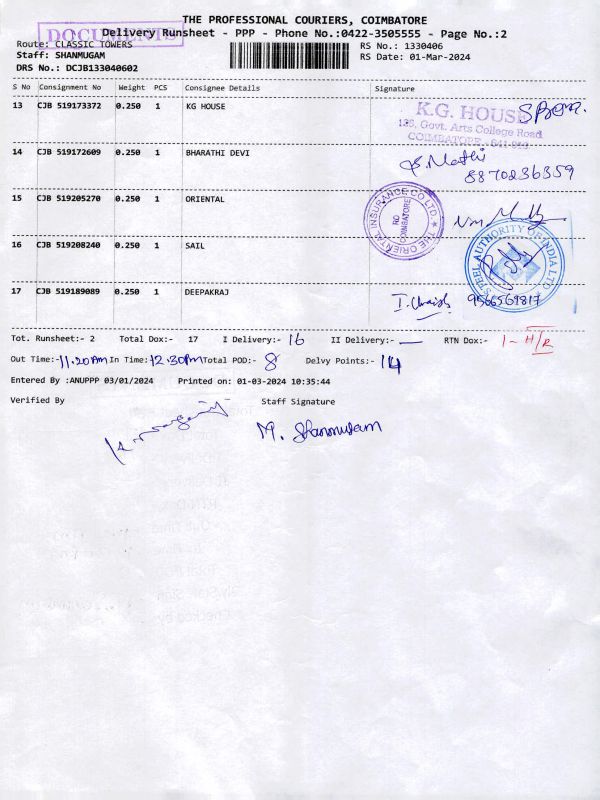 THE PROFESSIONAL COURIERS, COIMBATORE
DOCUMENTS
Delivery Runsheet - PPP - Phone No.:0422-3505555 - Page No.:2
Route: CLASSIC TOWERS
RS No.: 1330406
Staff: SHANMUGAM
RS Date: 01-Mar-2024
DRS No.: DCJB133040602
S No Consignment No Weight PCS Consignee Details Signature
13 CJB 519173372 0.250 1 KG HOUSE
K.G. HOUSE
135, Govt. Arts College Road
COIMBATORE - 641 018
14 CJB 519172609 0.250 1 BHARATHI DEVI
8870236359
15 CJB 519205270 0.250 1 ORIENTAL
THE ORIENTAL INSURANCE CO LTD.
RO COIMBATORE
16 CJB 519208240 0.250 1 SAIL
STEEL AUTHORITY OF INDIA LTD
17 CJB 519189089 0.250 1 DEEPAKRAJ
9566569817
Tot. Runsheet:- 2 Total Dox:- 17 I Delivery:- 16 II Delivery:- — RTN Dox:- 1 - H/R
Out Time:- 11.20 Am In Time:- 12.30 Pm Total POD:- 8 Delvy Points:- 14
Entered By :ANUPPP 03/01/2024 Printed on: 01-03-2024 10:35:44
Verified By Staff Signature
M. Shanmugam